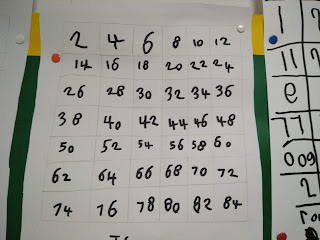 2 4 6 8 10 12
14 16 18 20 22 24
26 28 30 32 34 36
38 40 42 44 46 48
50 52 54 56 58 60
62 64 66 68 70 72
74 76 78 80 82 84
1
11
e
2